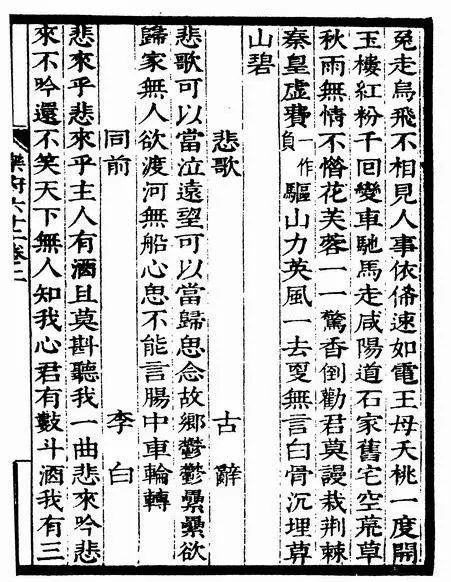 兔走烏飛不相見人事依俙速如電王母夭桃一度開
玉樓紅粉千回變車馳馬走咸陽道石家舊宅空荒草
秋雨無情不惜花芙蓉一一驚香倒勸君莫謾栽荆棘
秦皇虛費一作負驅山力英風一去更無言白骨沉埋暮
山碧
悲歌 古辭
悲歌可以當泣遠望可以當歸思念故鄉鬱鬱纍纍欲
歸家無人欲渡河無船心思不能言腸中車輪轉
同前 李白
悲來乎悲來乎主人有酒且莫斟聽我一曲悲來吟悲
來不吟還不笑天下無人知我心君有數斗酒我有三
樂府六十二卷二